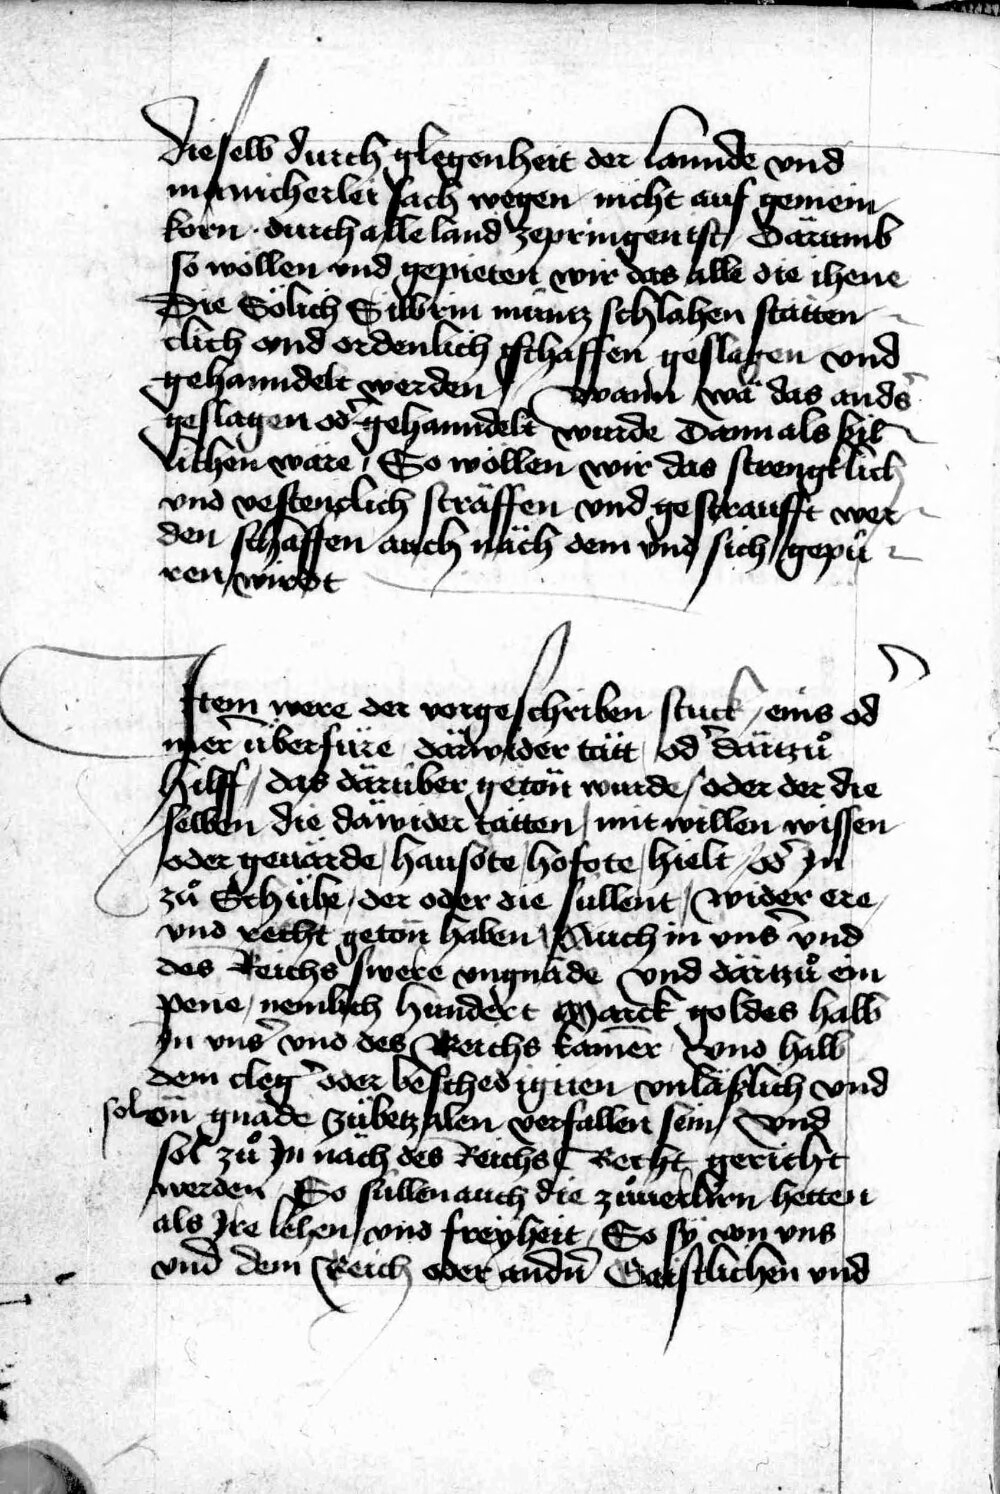 dieselb durch glegenheit der lannde vnd
mainicherlei sach wegen nicht auf gemein
korn durch alle land zepringen ist / Därumb
so wöllen vnd gepieten wir das alle die ihene
Die Sölich Silbrin müntz schlahen stätten
clich vnd ordenlich schaffen geslagen vnd
gehanndelt werden / Wann wä das anders
geslagen od' gehanndelt wurde Dann als bil
lichen wäre / So wöllen wir das strengklich
vnd vestenclich sträffen vnd gestraufft wer
den schaffen auch näch dem vnd sich gepü
ren wirdt
Item were der vorgeschriben stuck / eins od'
mer überfüre därwider tätt / od' därtzů
hilff / das därüber geton wurde / oder der die
selben die däwider tätten / mit willen wissen
oder geuärde / hausote / hofote / hielt / od' In
zů Schübe / der oder die sullent / wider ere /
vnd recht geton haben / Auch in vns' vnd
des Reichs swere vngnäde vnd därtzů ein
pene / nemlich hundert Marck goldes halb
In vns' vnd des Reichs kamer vnd halb
dem cleg' oder beschedigiten vnläßlich vnd
on gnade zübetzalen verfallen sein / Vnd
sol zů In näch des Reichs Recht gericht
werden / So süllen auch die zůuerlürn hetten
als Ire lehen / vnd freyheit / So sy von vns
vnd dem Reich oder andn' Gaistlichen vnd